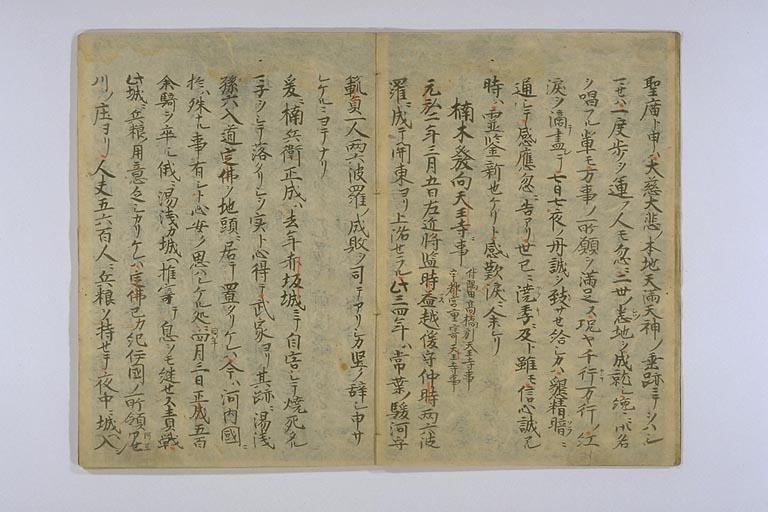 聖廣ト申ハ大慈大悲ノ本地天満天神ノ垂跡ニテシハシ
セハ一度歩ヲ運フ人モ忽ニ二世ノ悉地ヲ成就シ纔ニ御名
ヲ唱フル輩モ万事ノ所願ヲ満足ス況ヤ千行万行ノ紅
涙ヲ滴盡テ七日七夜ノ丹誠ヲ致サセ給ヘハ懇精暗ニ
通シテ感應忽ニ告アリ世已ニ澆季ニ及ト雖モ信心誠アル
時ハ霊鑒新也ケリト感歎涙ニ余レリ
楠木發向天王寺事
付隅田高橋到天王寺事
并都宮重寄天王寺事
元弘二年三月五日左近将監時益越後守仲時両六波
羅ニ成テ関東ヨリ上洛セラル此三四年ハ常葉ノ駿河守
範貞一人両六波羅ノ成敗ヲ司テアリシカ堅ク辞シ申サ
レケルニヨテナリ
爰ニ楠兵衛正成ハ去年赤坂城ニテ自害シテ焼死タル
マ子ヲシテ落タリシヲ実ト心得テ武家ヨリ其跡ニ湯浅
孫六入道定佛ヲ地頭ニ居テ置タリケレハ今ハ河内國ニ
於ハ殊ナル事有シト心安ク思ハレケル処ニ四月三日正成五百
余騎ヲ率シ俄ニ湯浅カ城ヘ推寄テ息ヲモ継セス責戦
此城ニ兵粮用意乏シカリケレハ定佛己カ紀伊國ノ所領アセ
川ノ庄ヨリ人夫五六百人ニ兵粮ヲ持セテ夜中ニ城ヘ入ン